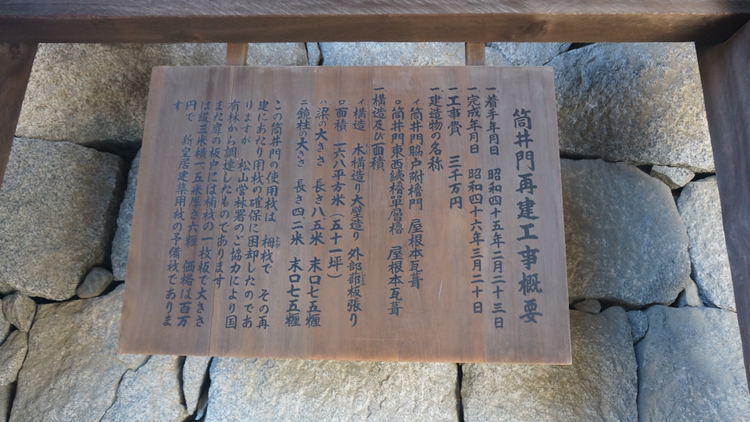 筒井門再建工事概要
一着手年月日 昭和四十五年二月二十三日
一完成年月日 昭和四十六年三月二十日
一工事費 三千万円
一建造物の名称
イ筒井門脇戸附櫓門 屋根本瓦葺
ロ筒井門東西続櫓単層櫓 屋根本瓦葺
一構造及び面積
イ構造 木構造り大壁造り 外部蔀板張り
ロ面積 一六八平方米(五十一坪)
ハ梁の大きさ 長さ八、五米 末口七五糎
ニ鏡柱の大きさ 長さ四、二米 末口七五糎
この筒井門の使用材は 栂材で その再
建にあたり用材の確保に困却したのであ
りますが 松山営林署のご協力により国
有林から調達したものであります
また扉の板戸には楠材の一枚板で大きさ
は縦三米横一、五米厚さ六糎 価格は百万
円で 新皇居建築用材の予備材でありま
す